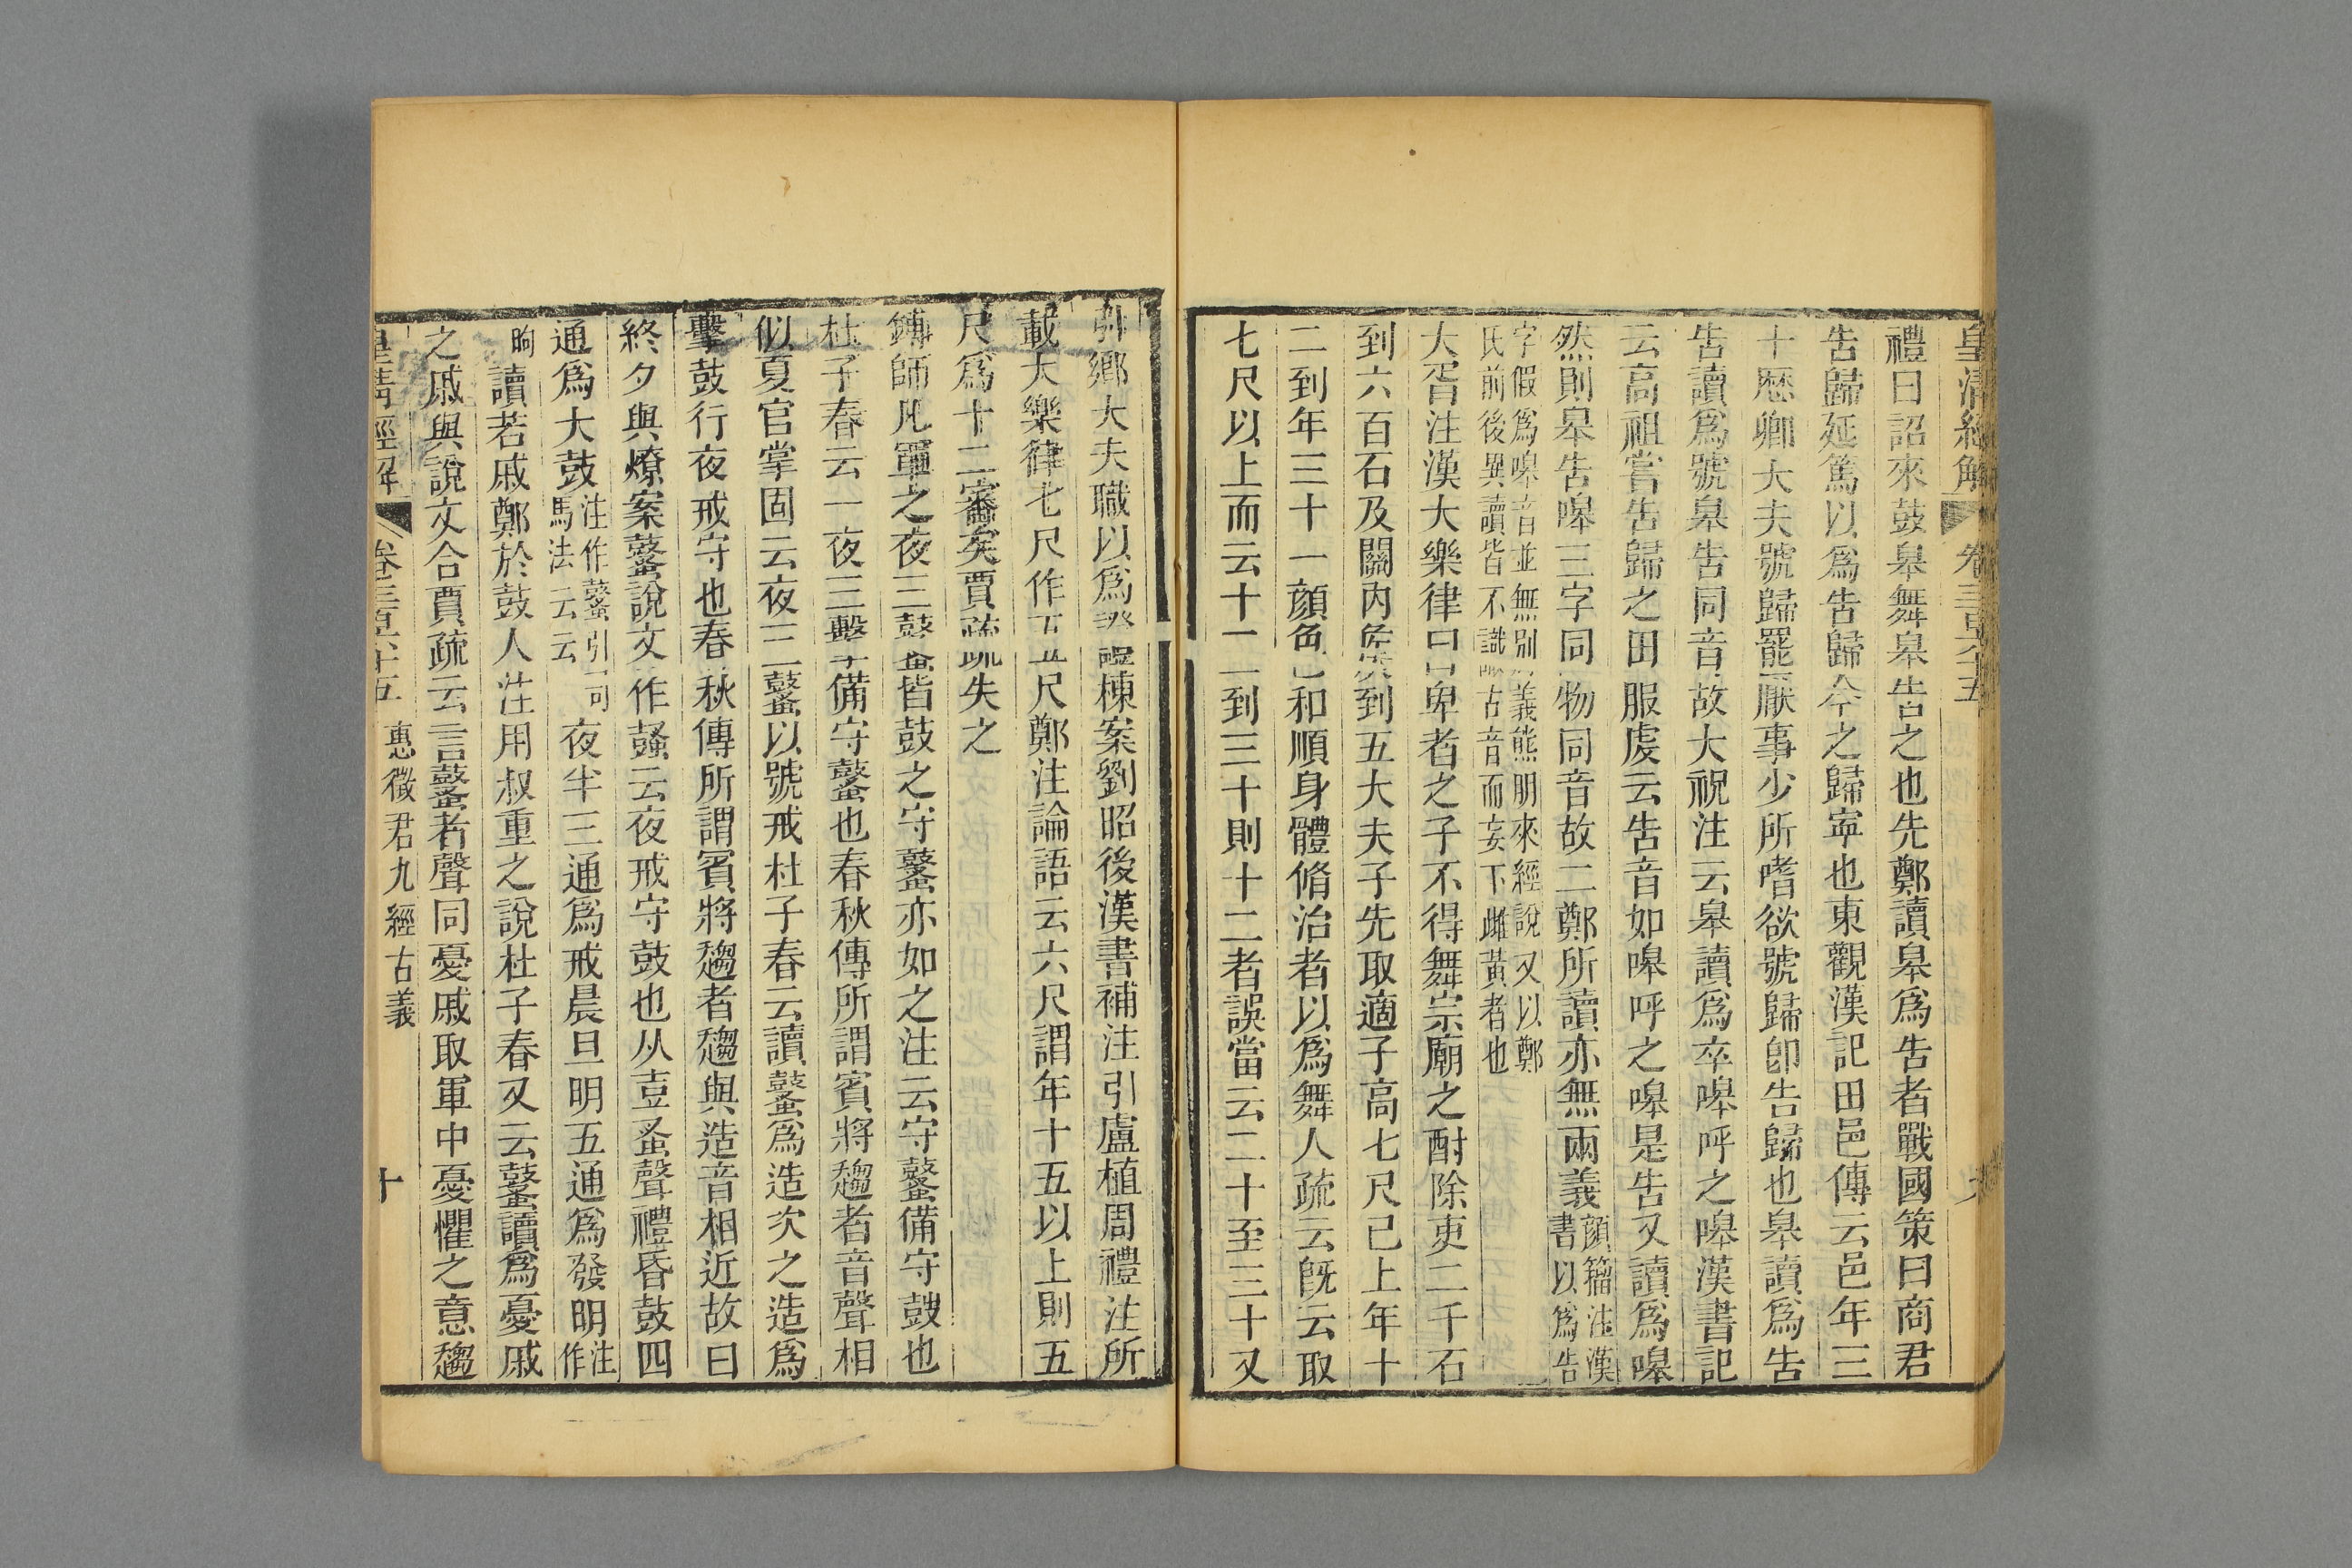 皇清經解 卷三百六十五
禮曰詔來鼓臯舞臯告之也先鄭讀臯爲告者戰國策曰商君
告歸延篤以爲告歸今之歸寧也東觀漢記田邑傳云邑年三
十歷卿大夫號歸罷厭事少所嗜欲號歸卽告歸也臯讀爲告
告讀爲號臯告同音故大祝注云臯讀爲卒嘷呼之嘷漢書記
云高祖嘗告歸之田服虔云告音如嘷呼之嘷是告又讀爲嘷
然則臯告嘷三字同物同音故二鄭所讀亦無兩義顏籀注漢
書以爲告
字假爲嘷音並無別義熊朋來經說又以鄭
氏前後異讀皆不識古音而妄下雌黃者也
大胥注漢大樂律曰卑者之子不得舞宗廟之酎除吏二千石
到六百石及關內侯到五大夫子先取適子高七尺已上年十
二到年三十一顏色和順身體脩治者以爲舞人疏云旣云取
七尺以上而云十二到三十則十二者誤當云二十至三十又
引鄉大夫職以爲證棟案劉昭後漢書補注引盧植周禮注所
載大樂律七尺作五尺鄭注論語云六尺謂年十五以上則五
尺爲十二審矣賈疏失之
鎛師凡軍之夜三鼜皆鼓之守鼜亦如之注云守鼜備守鼓也
杜子春云一夜三擊備守鼜也春秋傳所謂賓將趨者音聲相
似夏官掌固云夜三鼜以號戒杜子春云讀鼜爲造次之造爲
擊鼓行夜戒守也春秋傳所謂賓將趨者趨與造音相近故曰
終夕與燎案鼜說文作䥵云夜戒守鼓也从壴蚤聲禮昏鼓四
通爲大鼓注作鼜引司
馬法云云夜半三通爲戒晨旦明五通爲發明注
作
昫讀若戚鄭於鼓人注用叔重之說杜子春又云鼜讀爲憂戚
之戚與說文合賈疏云言鼜者聲同憂戚取軍中憂懼之意趨
皇清經解 卷三百六十五 惠徵君九經古義 十